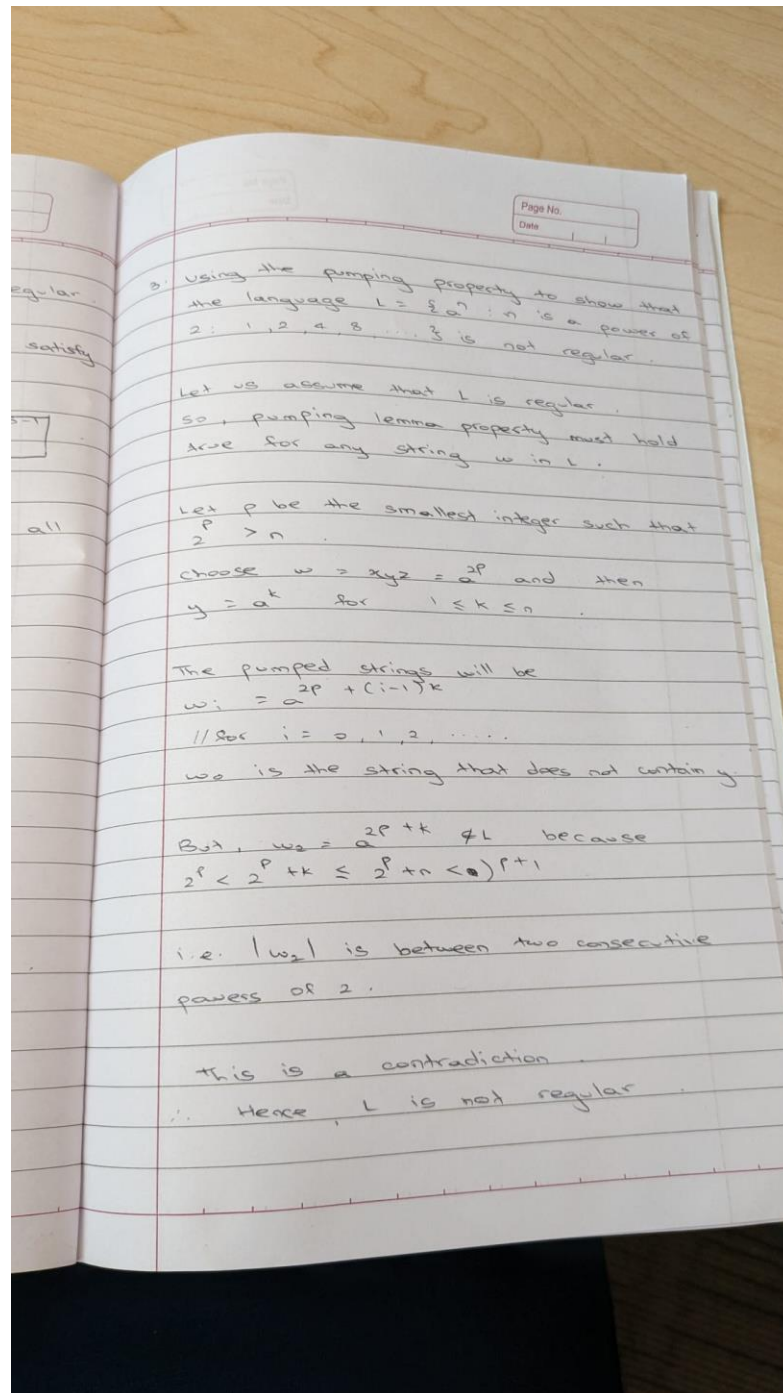 Page No.
Date
egular.
satisfy
all
3. Using the pumping property to show that
the language L = {aⁿ : n is a power of
2 : 1, 2, 4, 8, .... } is not regular.
Let us assume that L is regular.
so, pumping lemma property must hold
true for any string w in L.
Let p be the smallest integer such that
2ᵖ > n.
choose w = xyz = a²ᵖ and then
y = aᵏ for 1 ≤ k ≤ n.
The pumped strings will be
wᵢ = a²ᵖ + (i-1)k
// for i = 0, 1, 2, .....
w₀ is the string that does not contain y.
But, w₂ = a²ᵖ + k ∉ L because
2ᵖ < 2ᵖ + k ≤ 2ᵖ + n < ) p+1
i.e. |w₂| is between two consecutive
powers of 2.
this is a contradiction.
∴ Hence, L is not regular.